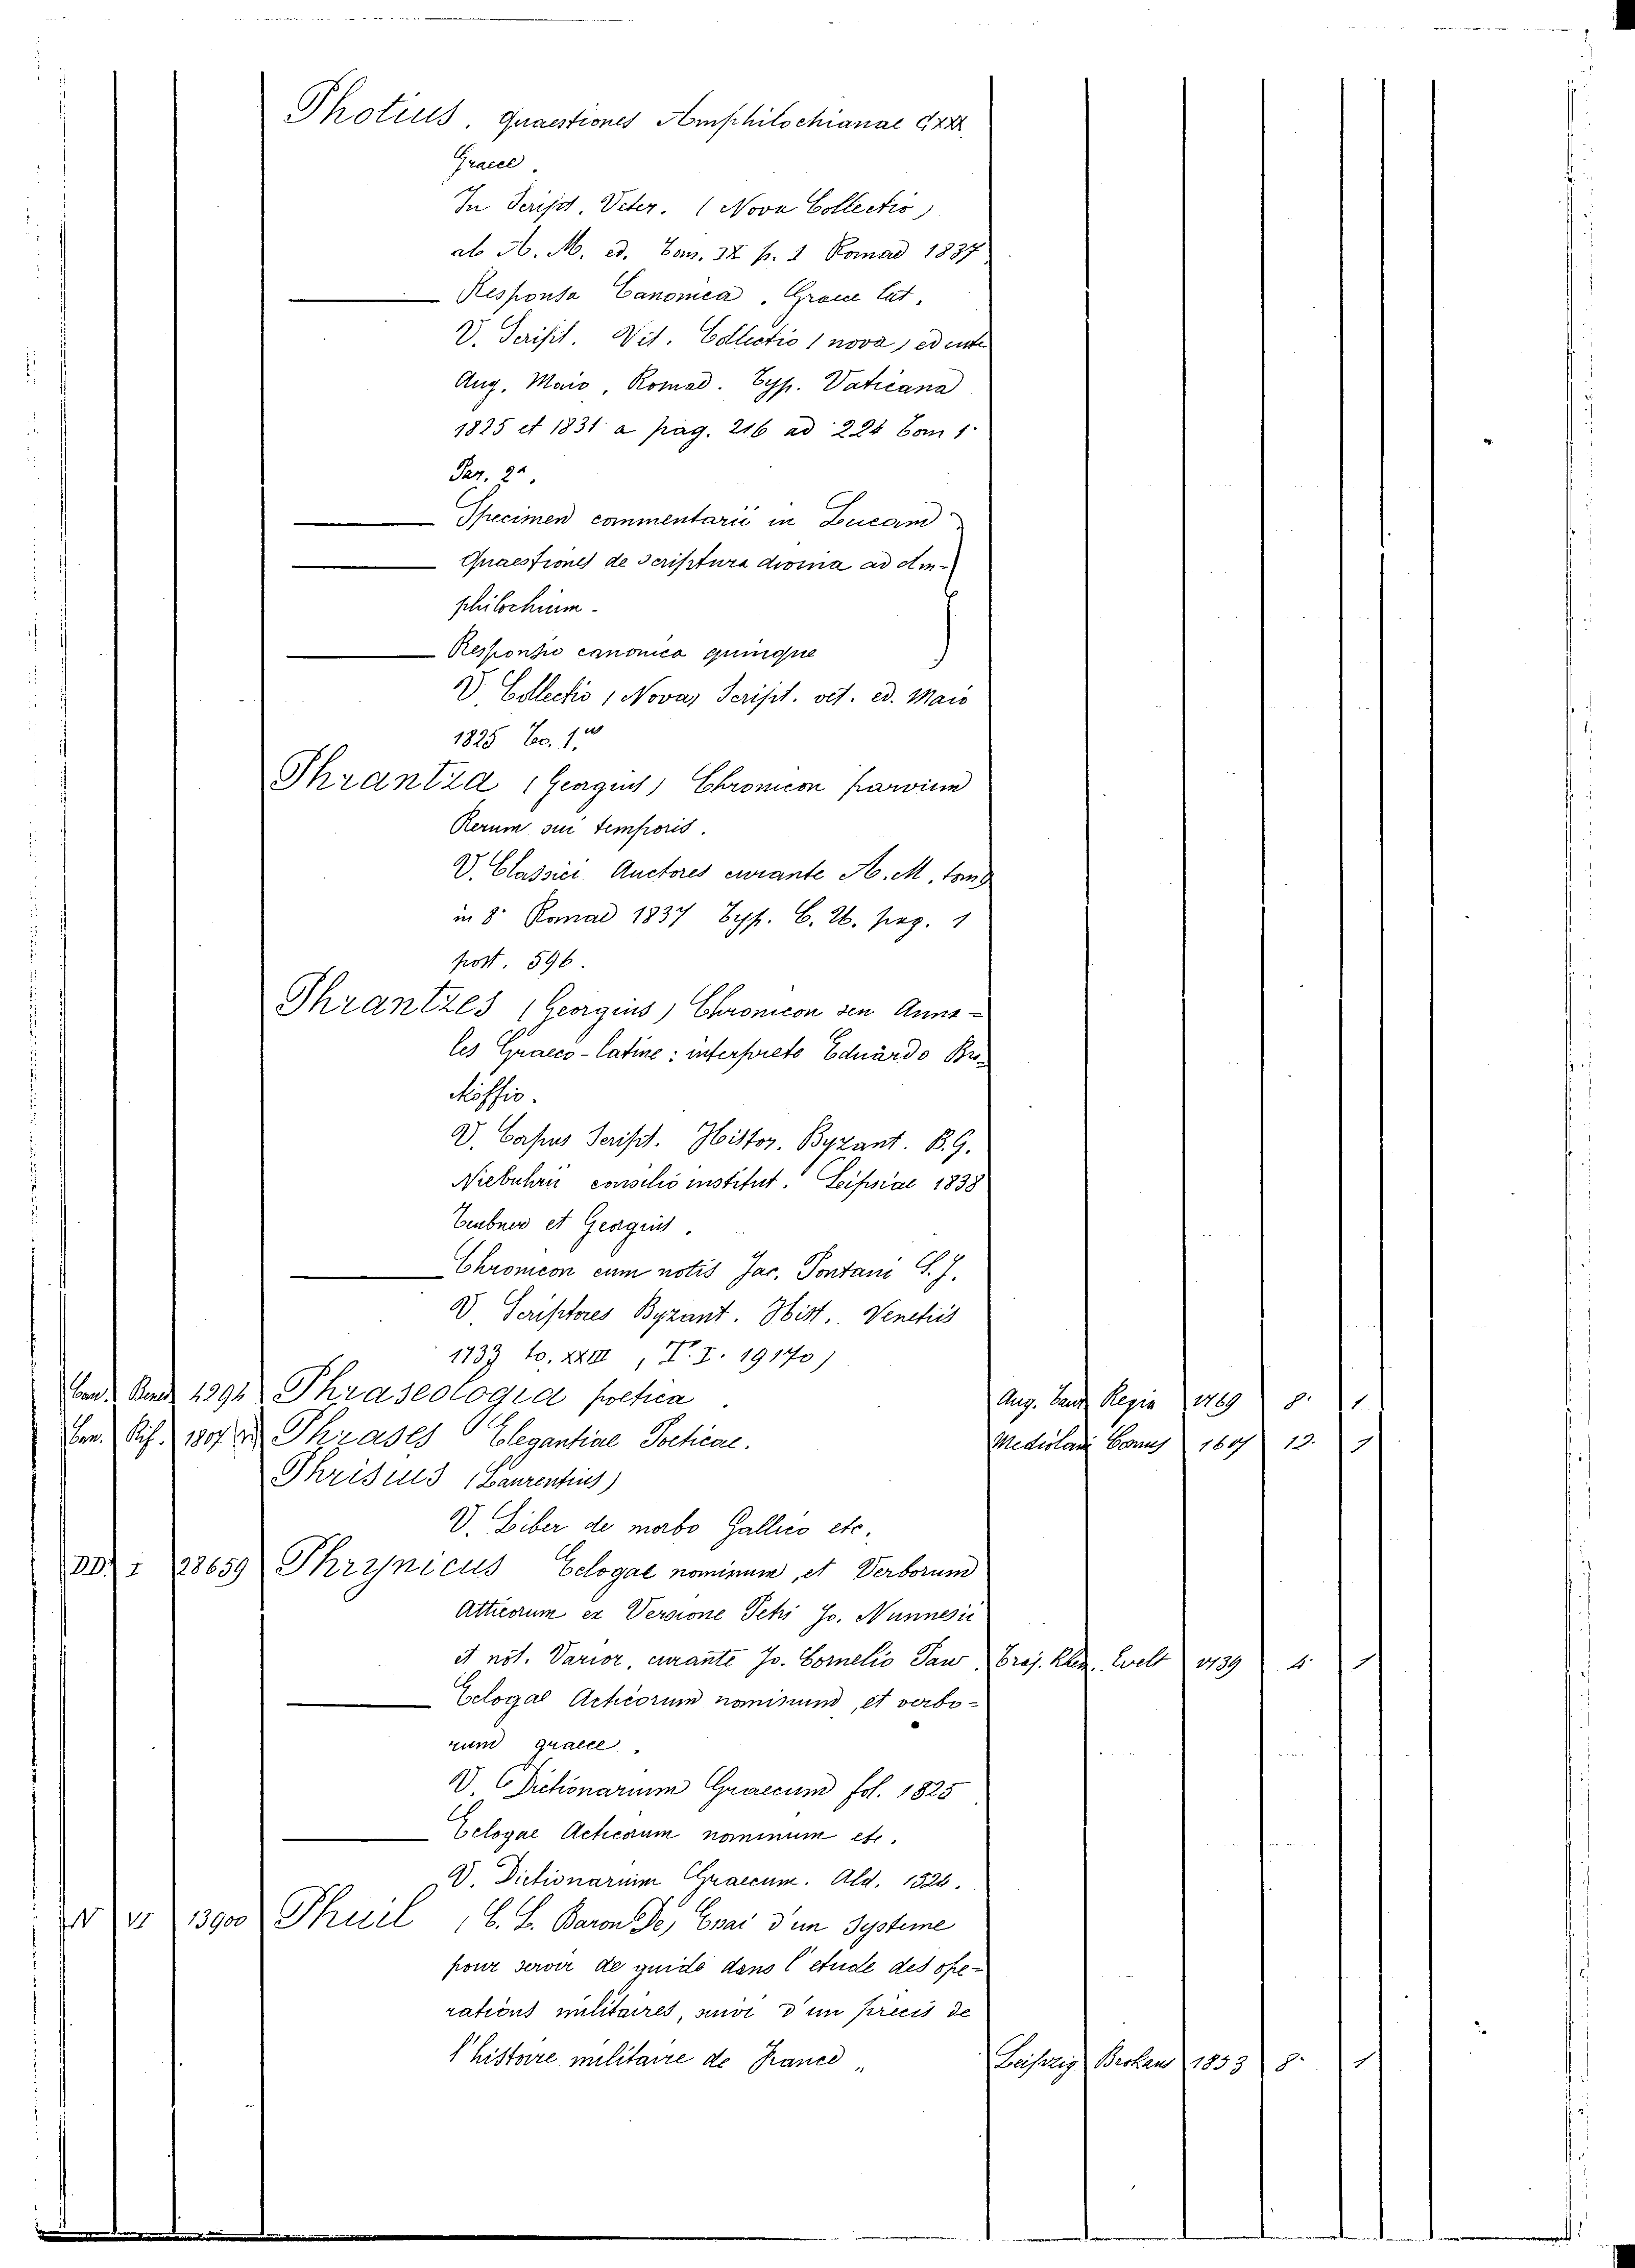 Photius. Quaestiones Amphilochianae
Graece.
In Script. Veter. (Nova Collectio)
ab A. M. ed. Tom. IX p. 1 Romae 1837
Responsa Canonica. Graece lat.
V. Script. Vet. Collectio (nova) edente
Aug. Maio, Romae. Typ. Vaticana
1825 et 1831 a pag. 216 ad 224 Tom 1
Par. 2ª.
Specimen commentarii in Lucam
Quaestiones de Scriptura divina ad Am-
philochium.
Responsio canonica quinque
V. Collectio (Nova) Script. vet. ed. Maio
1825 To. 1.us
Phrantza (Georgius) Chronicon parvum
Rerum sui temporis.
V. Classici Auctores curante A. M. tom 9
in 8º Romae 1837 Typ. C. U. pag. 1
post. 596.
Phrantzes (Georgius) Chronicon seu Anna-
les Graeco-latine: interprete Eduardo
V. Corpus Script. Histor. Byzant. B. G.
Niebuhrii consilio institut. Leipsiae 1838
Teubner et Georgius.
Chronicon cum notis Jac. Pontani S. J.
V. Scriptores Byzant. Hist. Venetiis
1733 to. XXIII, T. I. 19170)
Can. Bened. 4294 Phraseologia poetica. Aug. Taur. Regia 1769 8. 1
Can. Rif. 1807 Phrases Elegantiae Poeticae. Mediolani Comus 1607 12. 1
Phrisius (Laurentius)
V. Liber de morbo Gallico etc.
DD. I 28659 Phrynicus Eclogae nominum, et Verborum
Atticorum ex Versione Petri Jo. Nunnesii
et not. Varior, curante Jo. Cornelio Paw. Traj. Rhen. Evelt 1739 4. 1
Eclogae Acticorum nominum, et verbo-
rum graece.
V. Dictionarium Graecum fol. 1825
Eclogae Acticorum nominum etc.
V. Dictionarium Graecum. Ald. 1524.
N VI 13900 Phuil (C. L. Baron De) Essai d'un Systeme
pour servir de guide dans l'etude des ope-
rations militaires, suivi d'un précis de
l'histoire militaire de France„ Leipzig Brokaus 1853 8. 1